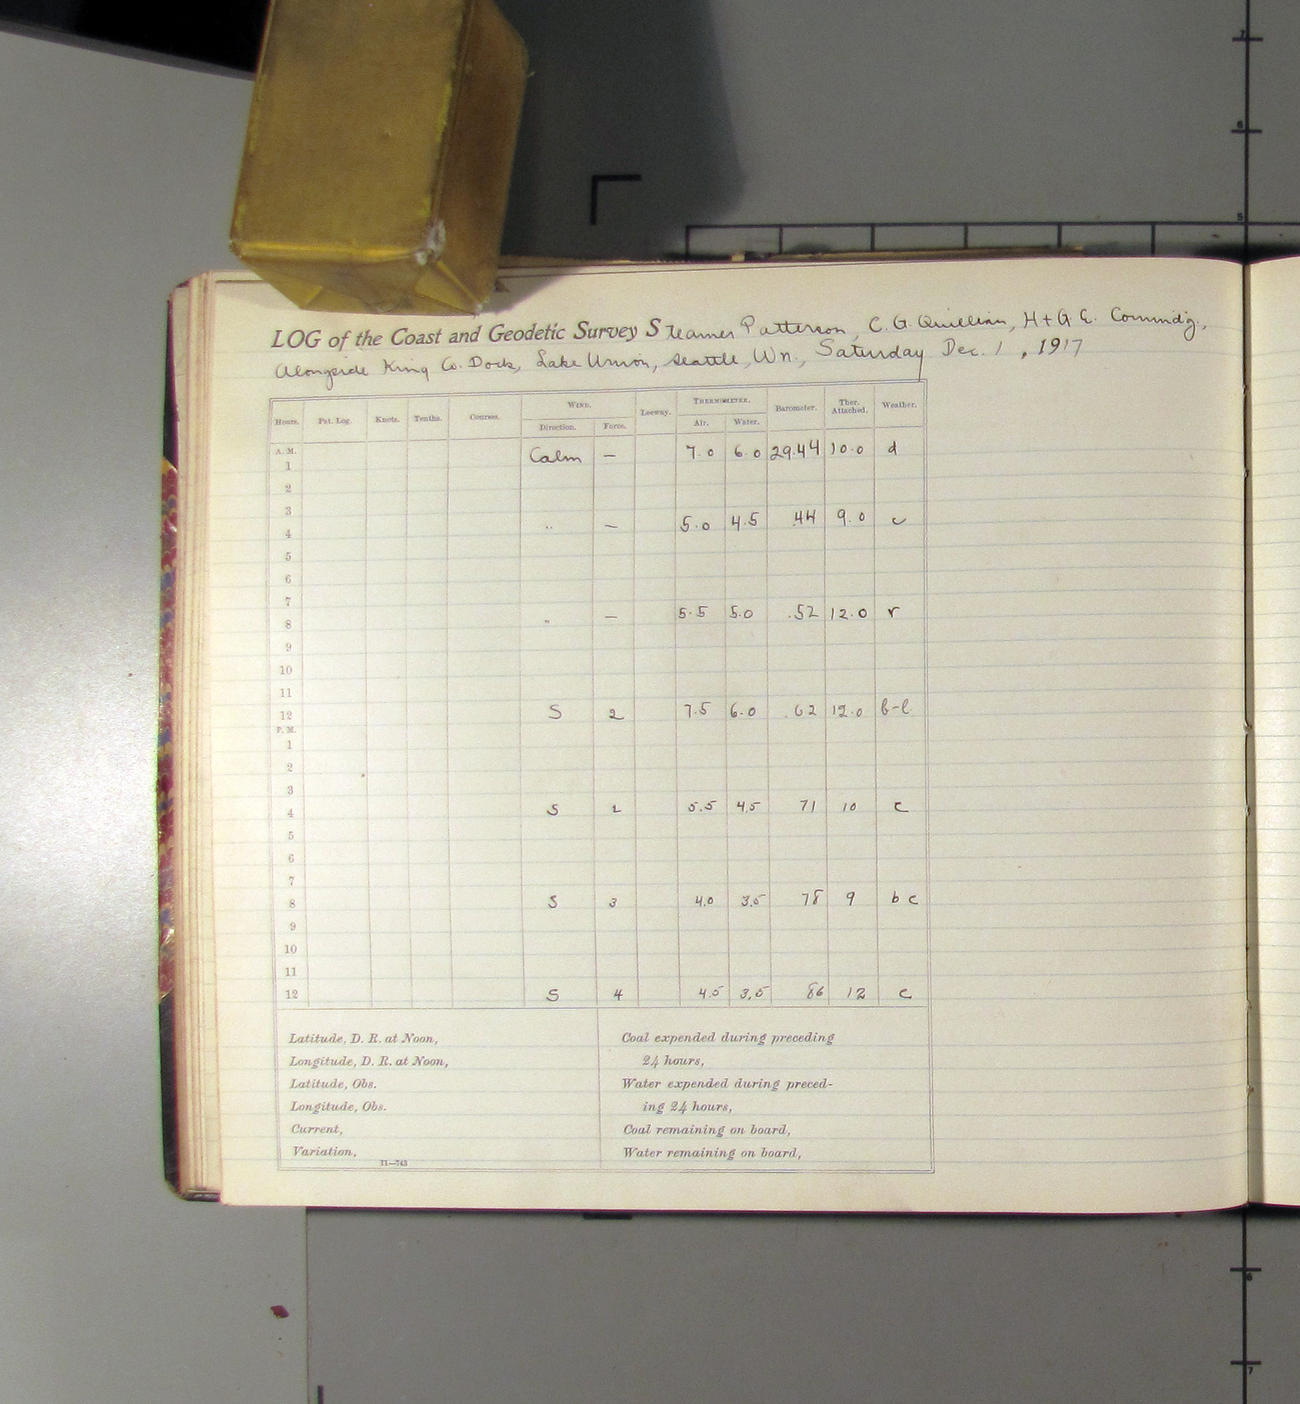 LOG of the Coast and Geodetic Survey Steamer Patterson, C. G. Quillian, H + G E. Commndg.,
Alongside King Co. Dock, Lake Union, Seattle, Wn., Saturday Dec. 1, 1917
Hours. Pat. Log. Knots. Tenths. Courses. WIND. Leeway. THERMOMETER. Barometer. Ther. Attached. Weather.
Direction. Force. Air. Water.
A. M.
1 Calm — 7.0 6.0 29.44 10.0 d
2
3
4 " — 5.0 4.5 .44 9.0 c
5
6
7
8 " — 5.5 5.0 .52 12.0 r
9
10
11
12 S 2 7.5 6.0 .62 12.0
P. M.
1
2
3
4 S 5.5 4.5 71 10 c
5
6
7
8 S 3 4.0 3.5 78 9 b c
9
10
11
12 S 4 4.5 3.5 86 12 c
Latitude, D. R. at Noon, Coal expended during preceding
Longitude, D. R. at Noon, 24 hours,
Latitude, Obs. Water expended during preced-
Longitude, Obs. ing 24 hours,
Current, Coal remaining on board,
Variation, Water remaining on board,
11—743